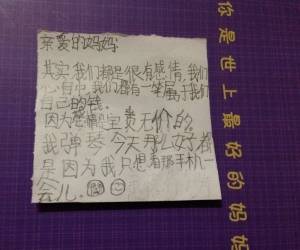 亲爱的妈妈:
其实我们都是很有感情,我们
心目中,我们都有一笔属于我们
自己的钱。
因为感情是无价的。
我弹琴今天那么好都
是因为我只想看那手机一
会儿。
你是世上最好的妈妈